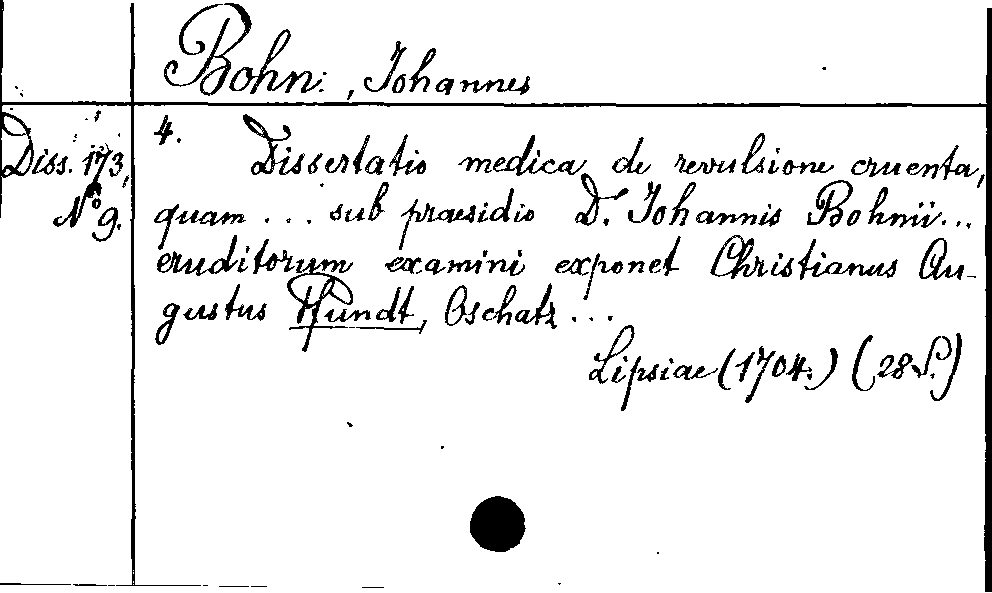 Bohn:, Johannes
Diss. 173,
No 9.
4. Dissertatio medica de revulsione cruenta,
quam ... sub praesidio D. Johannis Bohnii...
eruditorum examini exponet Christianus Au-
gustus Hundt, Oschatz ...
Lipsiae (1704.) (28 S.)